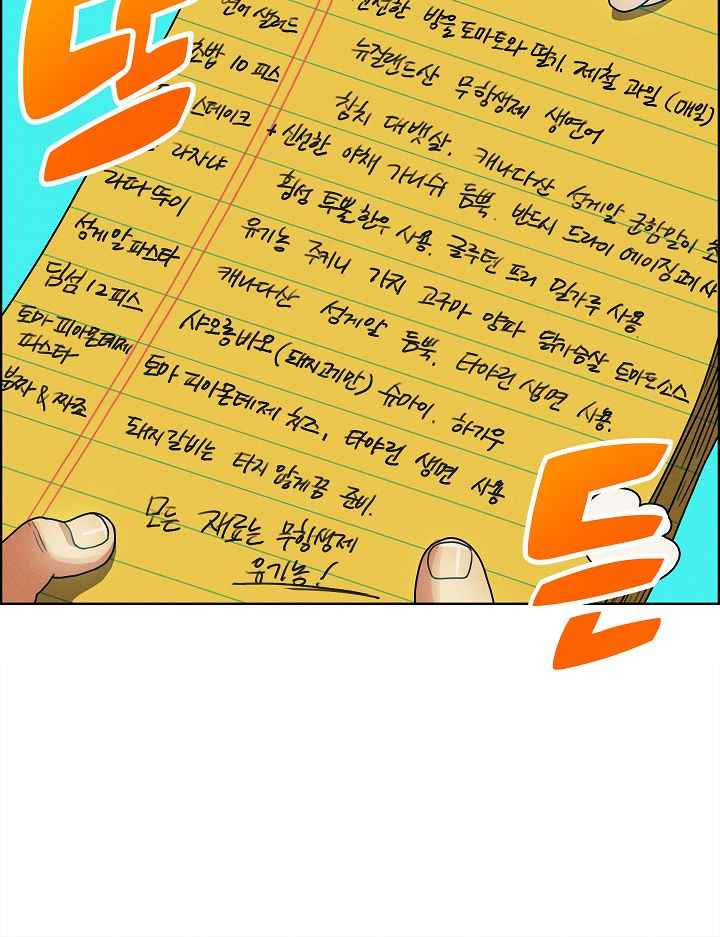 또
연어 샐러드
신선한 방울토마토와 딸기. 제철 과일 (매일)
초밥 10 피스
뉴질랜드산 무항생제 생연어
스테이크
참치 대뱃살. 캐나다산 성게알 군함말이
라자냐
+ 신선한 야채 가니쉬 듬뿍. 반드시 드라이 에이징
라따뚜이
횡성 투뿔한우 사용. 글루텐 프리 밀가루 사용.
성게알파스타
유기농 주키니 가지 고구마 양파 닭가슴살 토마토소스
딤섬 12피스
캐나다산 성게알 듬뿍. 타야린 생면 사용.
토마 피아몬테제
파스타
샤오롱바오 (돼지고기만) 슈마이. 하가우
& 짜죠
토마 피아몬테제 치즈, 타야린 생면 사용
돼지갈비는 타지 않게끔 준비.
모든 재료는 무항생제
유기농!
든